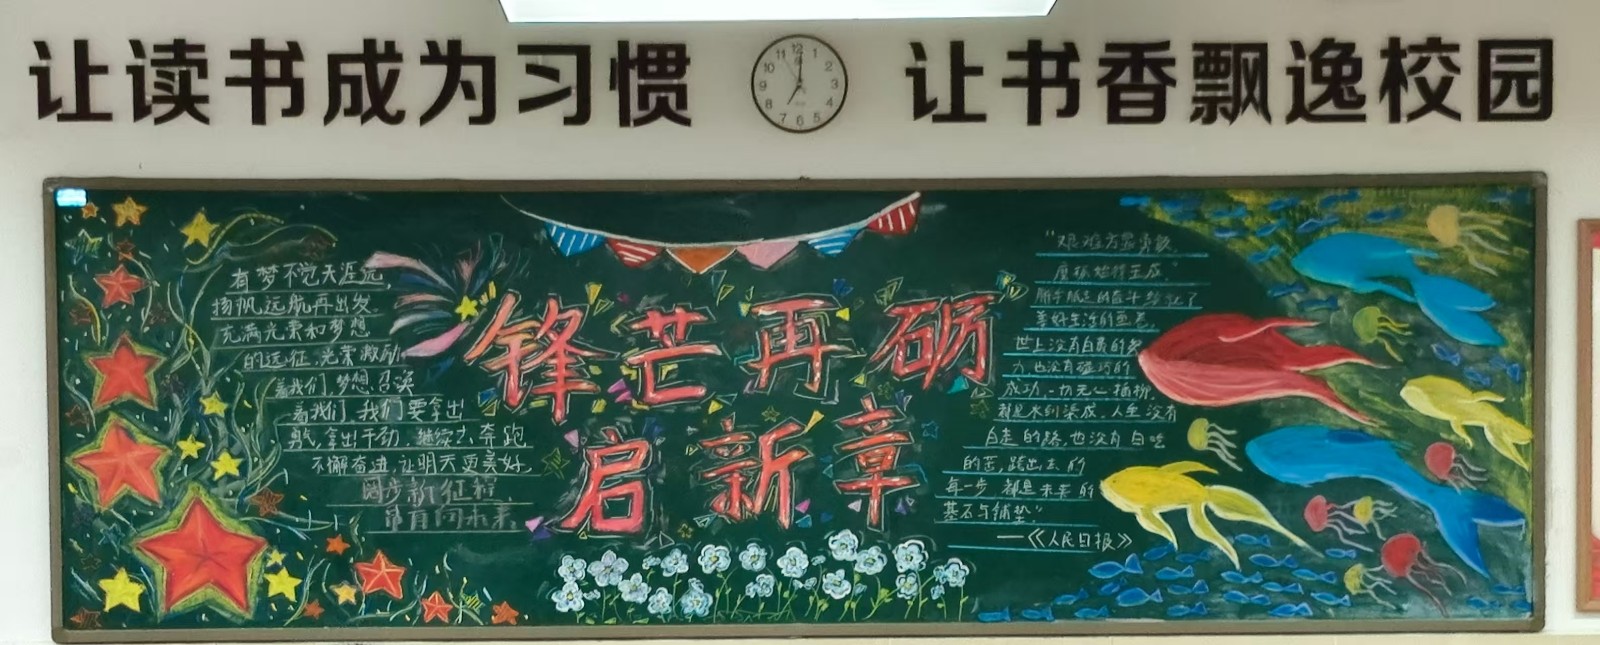 让读书成为习惯
12
1
2
3
4
5
6
7
8
9
10
11
让书香飘逸校园
有梦不觉天涯远,
扬帆远航再出发.
充满光荣和梦想
的远征,光荣激励
着我们,梦想召唤
着我们,我们要拿出
勇,拿出干劲,继续去奔跑
不懈奋进,让明天更美好,
阔步新征程,
昂首向未来
锋芒再砺
启新章
"艰难方显勇毅,
磨砺始得玉成."
胼手胝足的奋斗绘就了
美好生活的画卷,
世上没有白费的努
力,也没有碰巧的
成功,一切无心插柳,
都是水到渠成,人生没有
白走的路,也没有白吃
的苦,跨出去的
每一步,都是未来的
基石与铺垫."
——《人民日报》